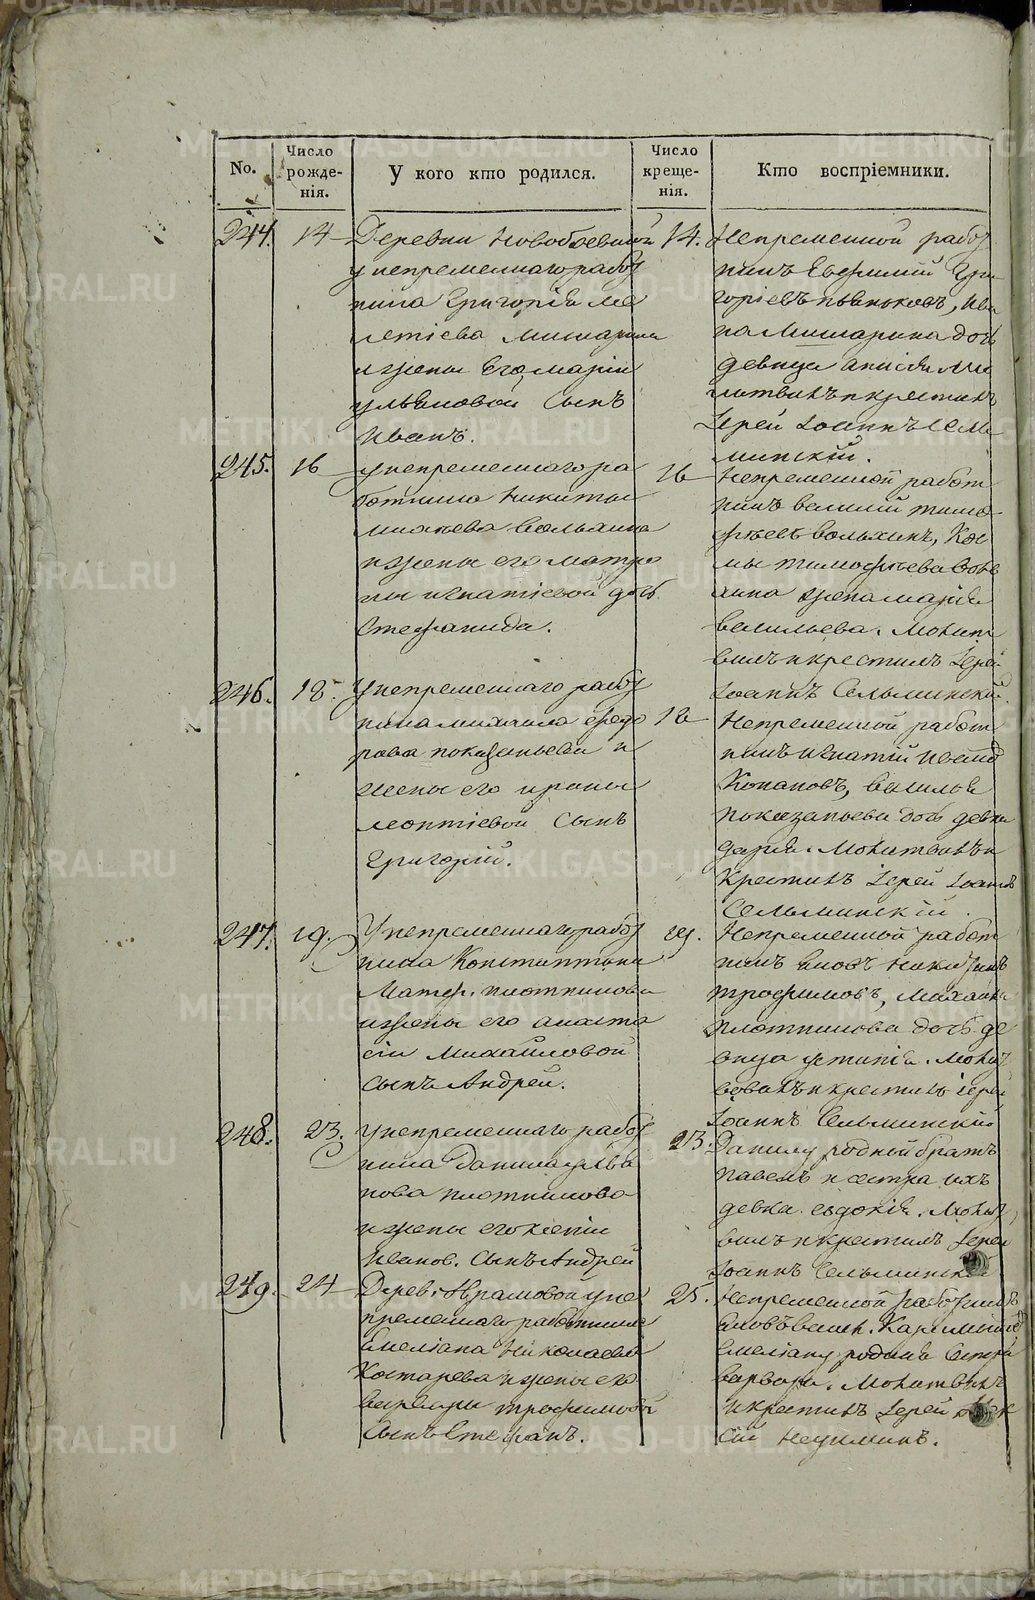 No.
Число рожденія.
У кого кто родился.
Число крещенія.
Кто воспріемники.
244.
14
Деревни Новобаевкой
у непременнаго работ
ника Григорія Ме
летіева Мишарина
и жены Его, Маріи
Ульяновой Сынъ
Иванъ.
14.
Непременной работ
никъ Евфимій Гри
горіевъ Пьянковъ, Ива
на Мишарина дочь
девица
крестилъ
Іерей Іоаннъ Сель
минскій.
245.
16
У непременнаго ра
ботника Никиты
Вольхина
и жены его Матро
ны Игнатіевой дочь
Стефанида.
16
Непременной работ
никъ Василій Тимо
фѣевъ Вольхинъ, Кос
мы Тимофѣева Воль
хина жена Марія
Васильева. Молит
вилъ и крестилъ Іерей
Іоаннъ Сельминскій
246.
18.
У непременнаго работ
ника Михаила Федо
рова Показаньева и
жены его Ирины
Леонтіевой Сынъ
Григорій.
18
Непременной работ
никъ Игнатій Иванов
Копаповъ, Василія
Показаньева дочь девка
Дарія. Молитвилъ и
Крестилъ Іерей Іоаннъ
Сельминскій.
247.
19.
У непременнаго работ
ника Константина
Матф. Плотникова
и жены его Анаста
сіи Михайловой
сынъ Андрей.
19.
Непременной работ
никъ Яковъ
Трофимовъ, Михаила
Плотникова дочь де
вица Устинія. Молит
вовалъ и крестилъ Іерей
Іоаннъ Сельминскій
248.
23.
У непременнаго работ
ника Данила Улья
нова Плотникова
и жены его Ксеніи
Иванов. Сынъ Андрей
23.
Данилу родной братъ
Павелъ и сестра ихъ
девка Евдокія. Молит
вилъ и крестилъ Іерей
Іоаннъ Сельминскій
249.
24
Дерев. Храмовой у не
пременнаго работника
Емеліана Николаева
Костарева и жены его
Варвары Трофимовой
Сынъ Стефанъ.
25.
Непременной работникъ
Яковъ Васил.
Емеліану родная Сестра
Варвара. Молитвилъ
и крестилъ Іерей Алек
сій Неуиминъ.
METRIKI.GASO-URAL.RU